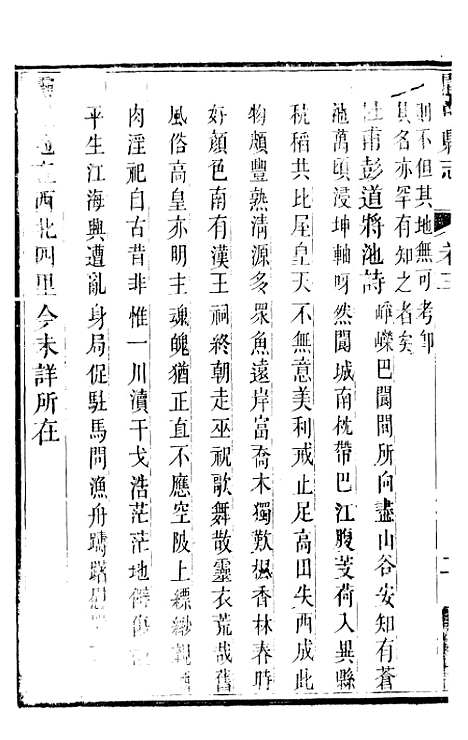 則不但其地無可考即
其名亦罕有知之者矣
杜甫彭道將池詩 崢嶸巴閬間所向盡山谷安知有蒼
池萬頃浸坤軸呀然閬城南枕帶巴江腹芰荷入異縣
秔稻共比屋皇天不無意美利戒止足高田失西成此
物頗豐熟清源多眾魚遠岸富喬木獨歎楓香林春時
好顏色南有漢王祠終朝走巫祝歌舞散靈衣荒哉舊
風俗高皇亦明主魂魄猶正直不應空陂上縹緲親
肉淫祀自古昔非惟一川瀆干戈浩茫茫地僻傷
平生江海興遭亂身局促駐馬問漁舟躊躇慰
西北四里今未詳所在
縣志
卷三